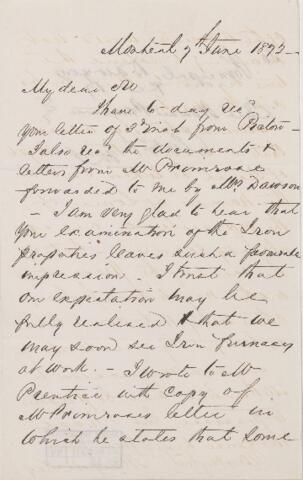 Montreal 7th June 1872 -
My dear Sir
I have to day recd
your letter of 3rd inst from Pictou -
I also recd the documents &
letters from Mr Primrose
forwarded to me by Mrs Dawson
- I am very glad to hear that
your examination of the Iron
properties leaves such a favorable
impression. I trust that
our expectation may be
fully realised & that we
may soon see Iron furnaces
at work. - I wrote to Mr
Prentice with copy of
Mr Primroses letter in
which he states that some